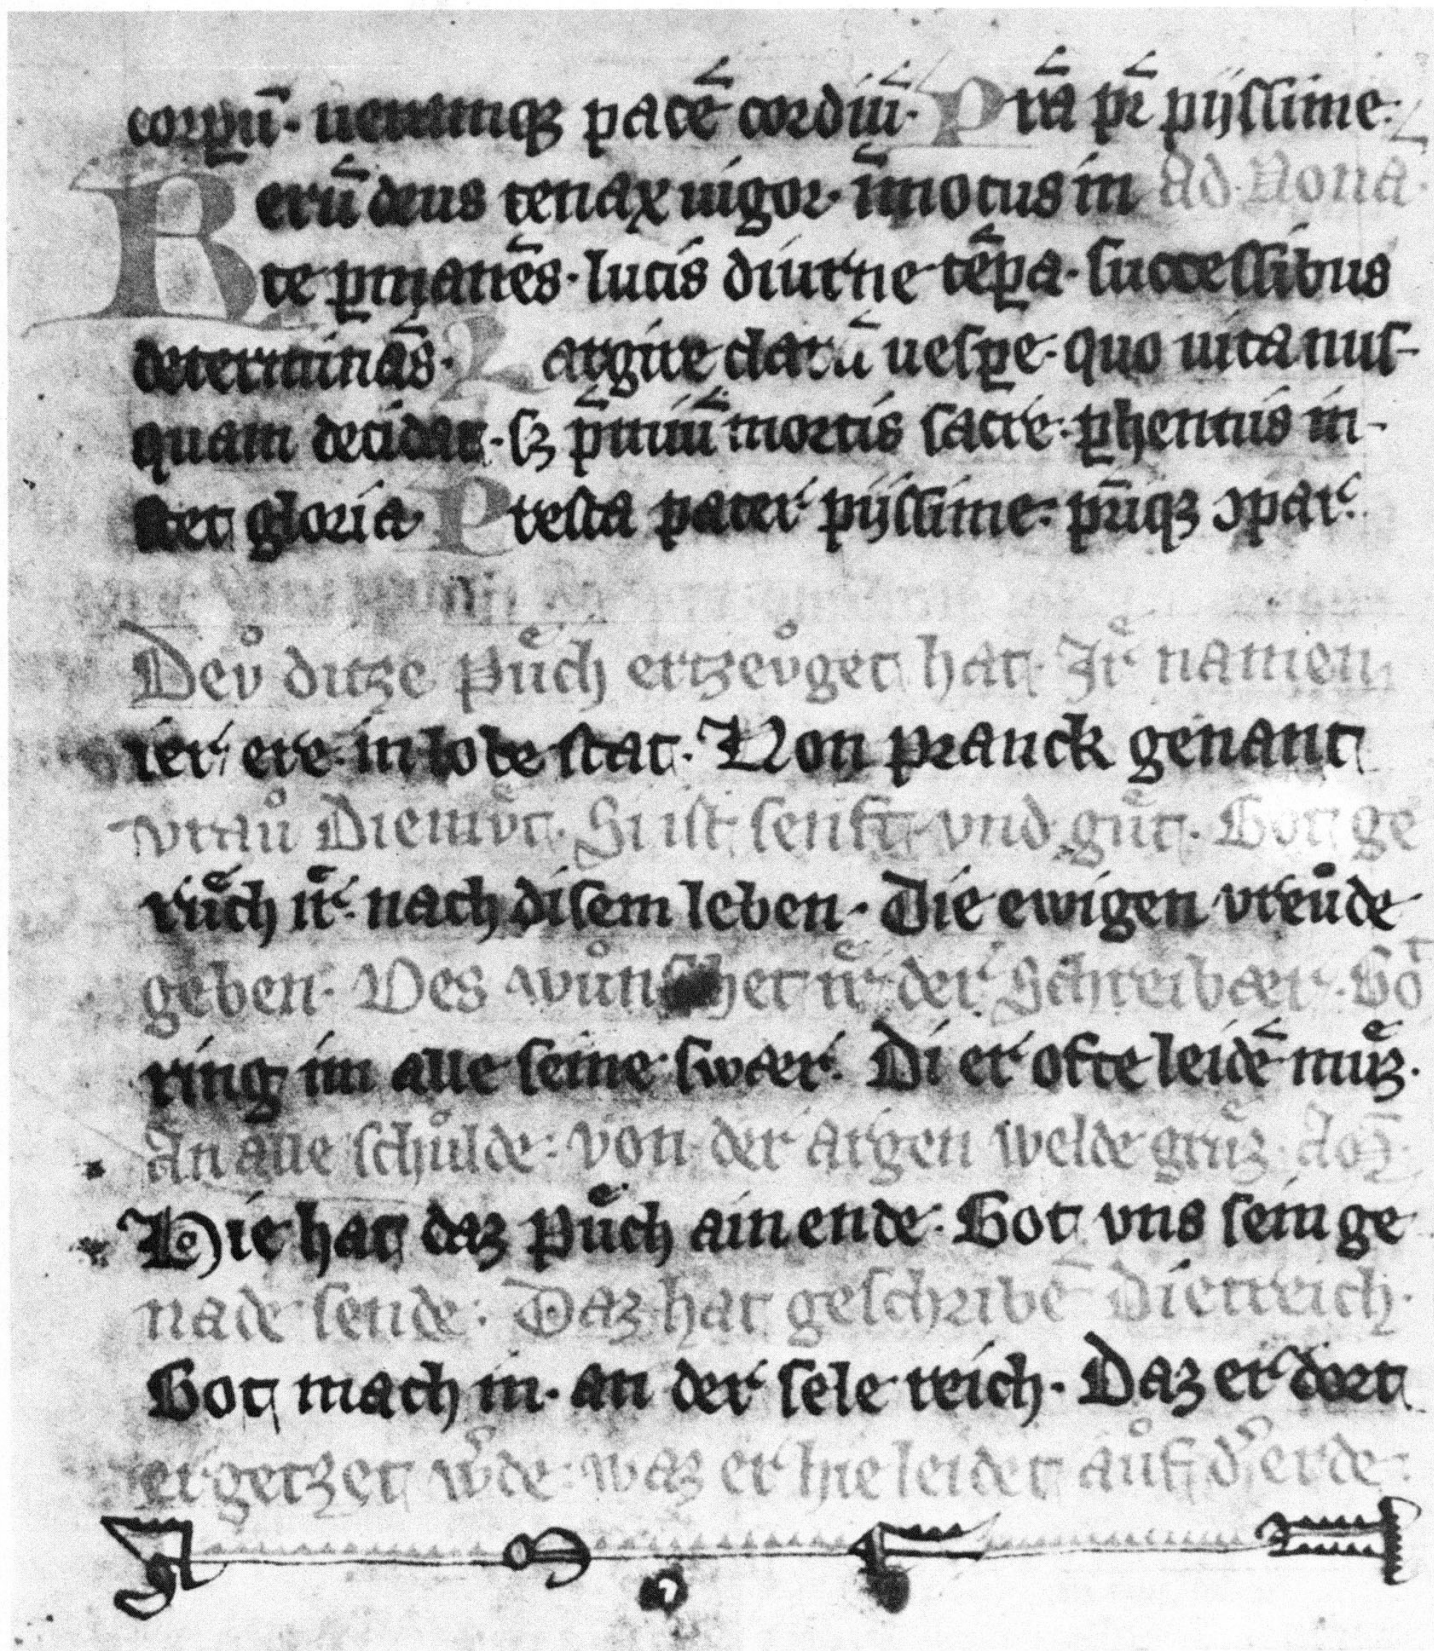 corꝑū· ueramqꝫ pacē cordiū· P rā pr̄ pijssime·
Rerū deus tenax uigor· īmotus in Ad Nona·
te ꝑmanēs· lucis diurne tēꝑa· successibus
determinās· Largire clarū uesꝑe· quo uita nus-
quam decidat· sꝫ p̄miū mortis sacre· ꝑhennis in-
stet gloria· Presta pater pijssime· pr̄iqꝫ ꝯpar·
Dev̊ ditze Půch ertzev̊get hat· Ir namen
ier ere in lobe stat· Von Pranck genant
vraů Diemv̊t· Si ist senft vnd gůt· Got ge
růch ir· nach disem leben· Die ewigen vreůde
geben· Des wůnschet ir der Schreibær· Got
ring im alle seine swær· Di er ofte leidē můꝫ·
An alle schůlde· von der argen welde grůꝫ· Am̄·
Hie hat daꝫ Půch ain ende· Got vns sein ge
nade sende· Daꝫ hat geschribē Dietreich·
Got mach in· an der sele reich· Daꝫ er dort
ergetzet wͦde· waꝫ er hie leidet aůf dˀ erde·